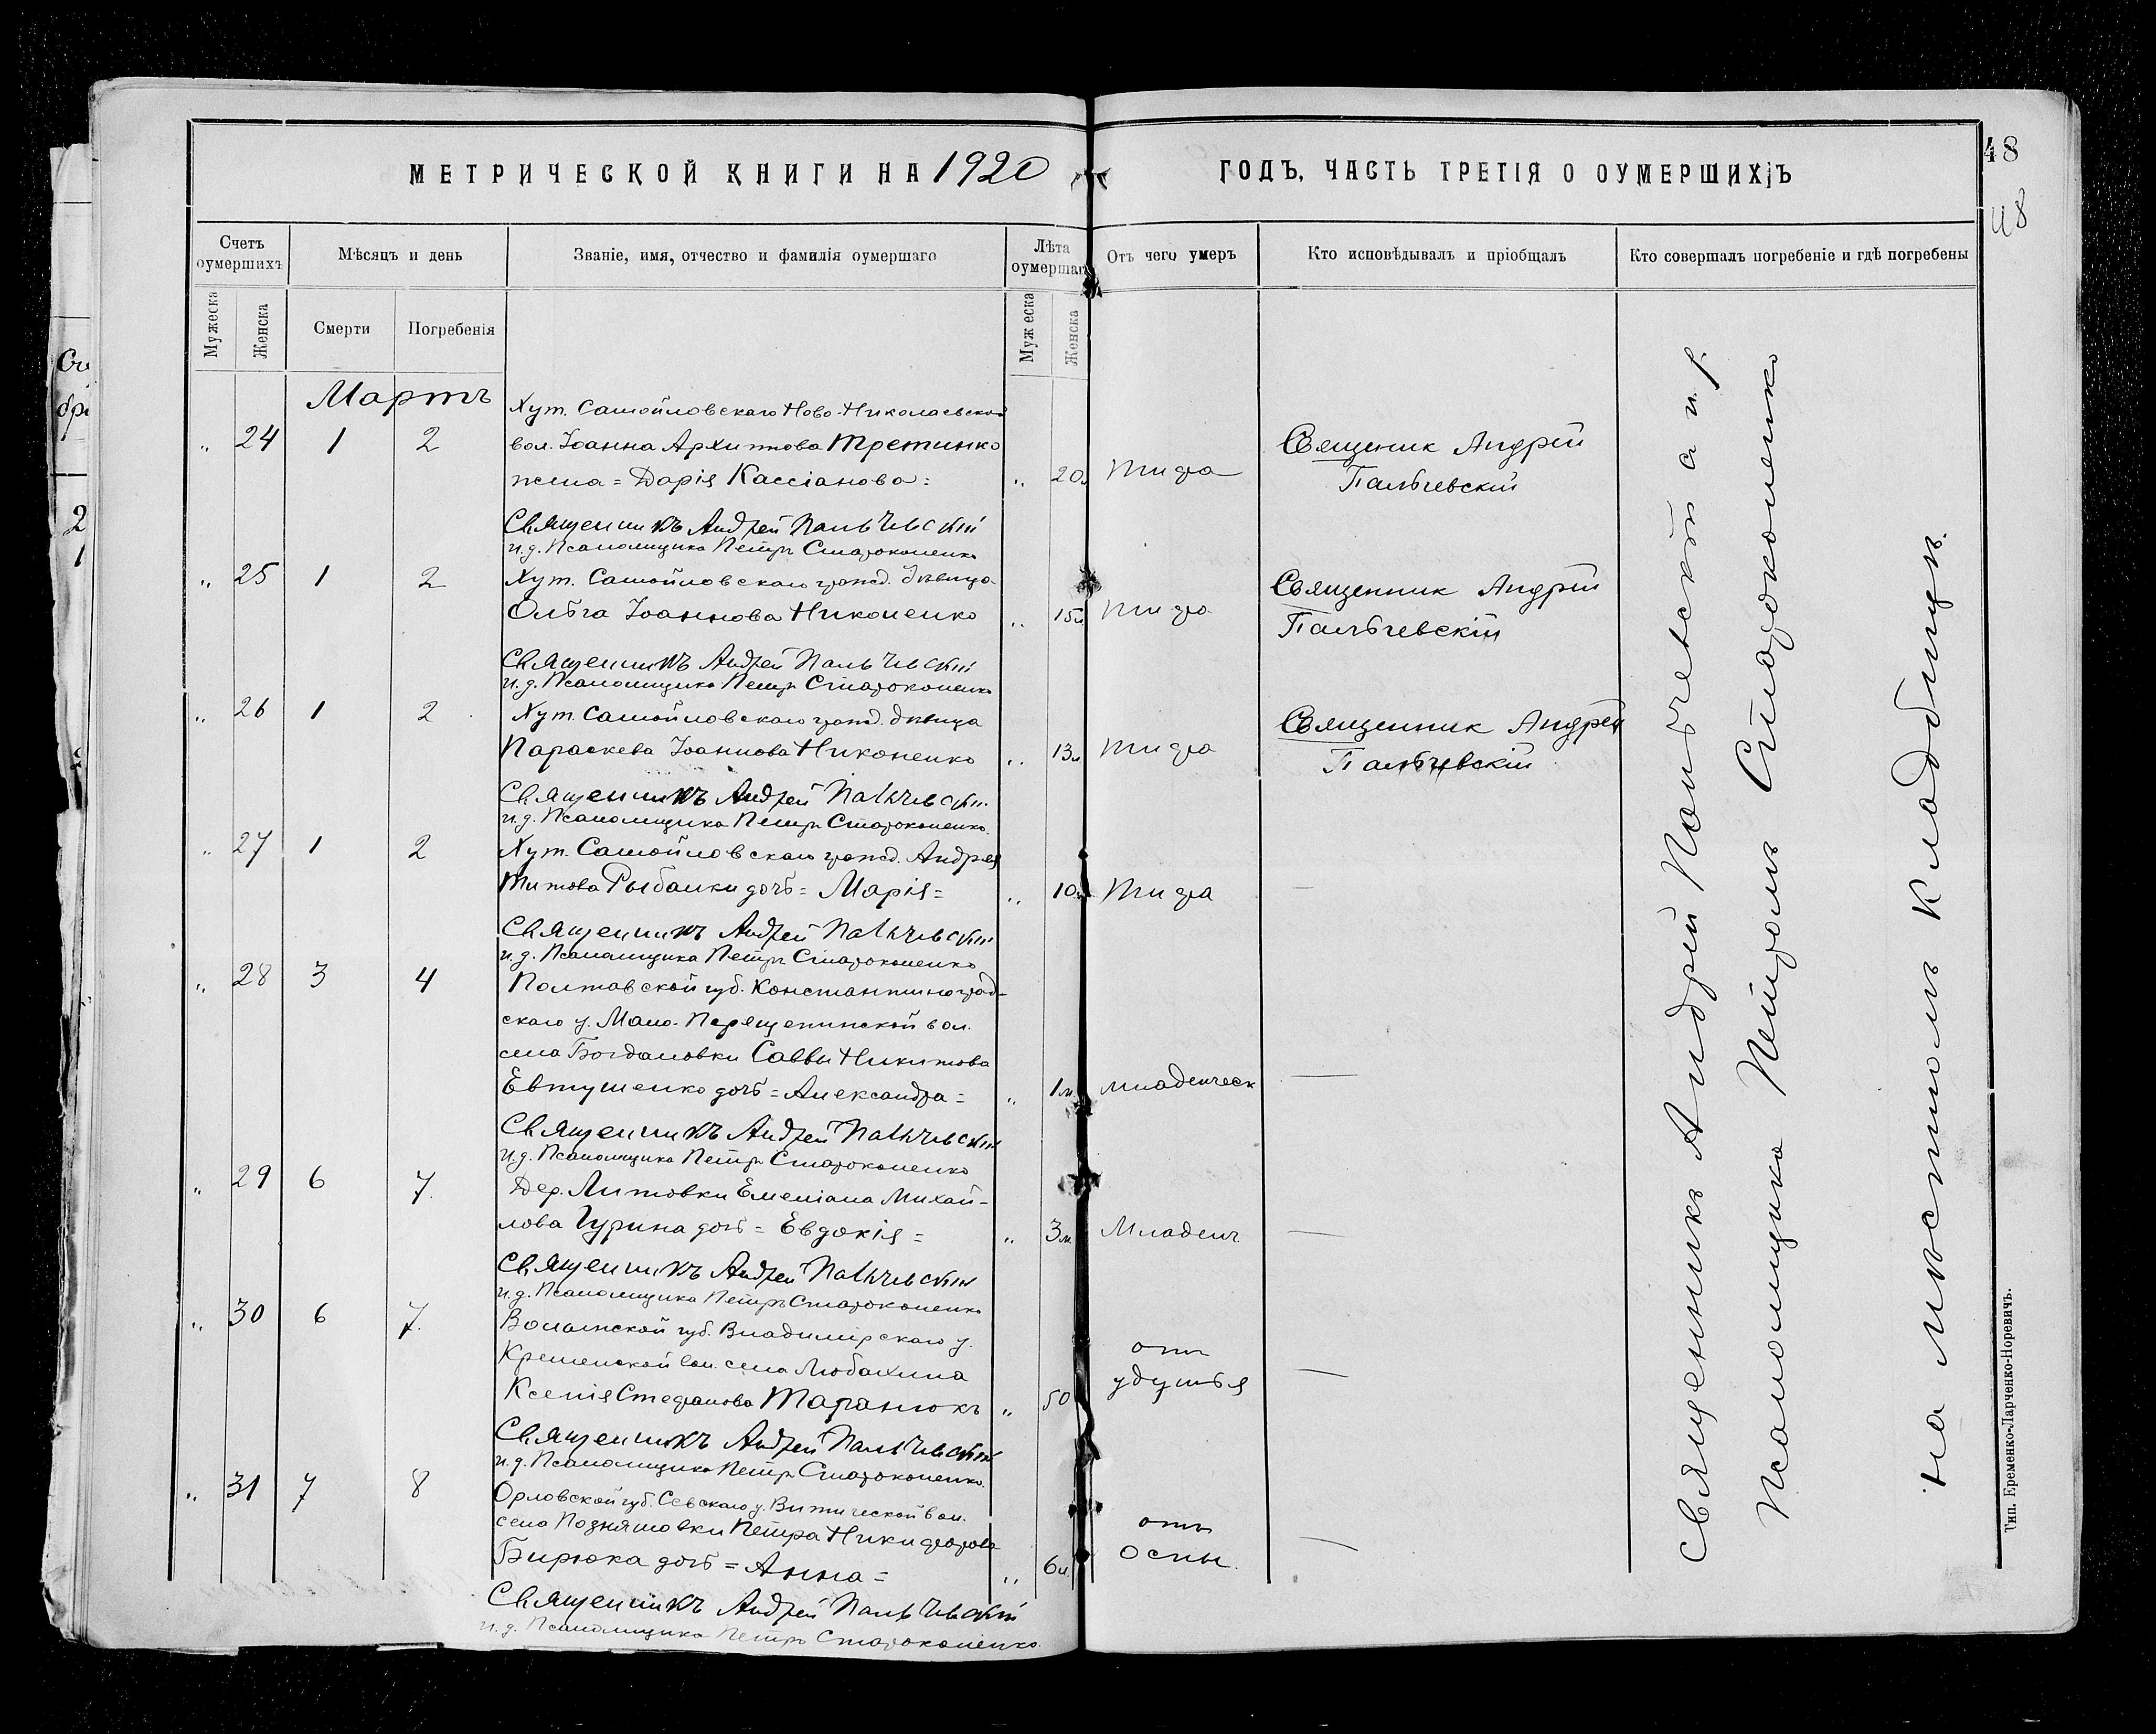 МЕТРИЧЕСКОЙ КНИГИ НА 1920
ГОДЪ, ЧАСТЬ ТРЕТІЯ О ОУМЕРШИХЪ
48
48
Счетъ оумершихъ
Мѣсяцъ и день
Званіе, имя, отчество и фамилія оумершаго
Лѣта оумершаг
Отъ чего умеръ
Кто исповѣдывалъ и пріобщалъ
Кто совершалъ погребеніе и гдѣ погребены
Мужеска
Женска
Смерти
Погребенія
Мужеска
Женска
Мартъ
Хут. Самойловскаго Ново-Николаевской
„ 24 1 2 вол. Іоанна Архипова Третинко
жена = Дарія Кассіанова = „ 20 Тифа
Священик Андрей
Пальчевскій
Священникъ Андрей Пальчевскій
и.д. Псаломщика Петръ Староконенко
„ 25 1 2 Хут. Самойловскаго гражд. дѣвица
Ольга Іоаннова Никоненко „ 15 л Тифа
Священник Андрей
Пальчевскій
Священникъ Андрей Пальчевскій
и.д. Псаломщика Петръ Староконенко
„ 26 1 2 Хут. Самойловскаго гражд. дѣвица
Параскева Іоаннова Никоненко „ 13 л Тифа
Священник Андрей
Пальчевскій
Священникъ Андрей Пальчевскій
и.д. Псаломщика Петръ Староконенко.
„ 27 1 2 Хут. Самойловскаго гражд. Андрея
Титова Рыбалки дочь = Марія = „ 10 Тифа —
Священникъ Андрей Пальчевскій
и.д. Псаломщика Петръ Староконенко
„ 28 3 4 Полтавской губ. Константиноград-
скаго у. Мало-Перещепинской вол.
села Богдановки Саввы Никитова
Евтушенко дочь = Александра = „ 1 м младенческ —
Священникъ Андрей Пальчевскій
и.д. Псаломщика Петръ Староконенко
„ 29 6 7. Дер. Литовки Емеліана Михай-
лова Гурина дочь = Евдокія = „ 3 м. Младенч. —
Священникъ Андрей Пальчевскій
и.д. Псаломщика Петръ Староконенко
„ 30 6 7. Волынской губ. Владимірскаго у.
вол. села Любахина
Ксенія Стефанова Таранюкъ „ 50 отъ удушья —
Священникъ Андрей Пальчевскій
и.д. Псаломщика Петръ Староконенко.
„ 31 7 8 Орловской губ. Севскаго у. Витической вол.
села Позняшовки Петра Никифорова
Бирюка дочь = Анна = „ 6 л отъ Оспы. —
Священникъ Андрей Пальчевскій
и.д. Псаломщика Петръ Староконенко.
Священникъ Андрей Пальчевскій с и. д.
Псаломщика Петромъ Староконенко
на мѣстномъ кладбищѣ.
Тип. Еременко-Ларченко-Норевичъ.